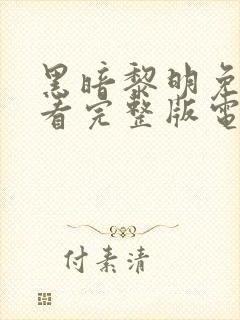 黑暗黎明免
看完整版电
付素清